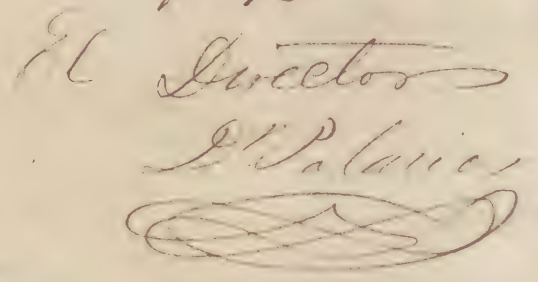 El Director
D. Palacios